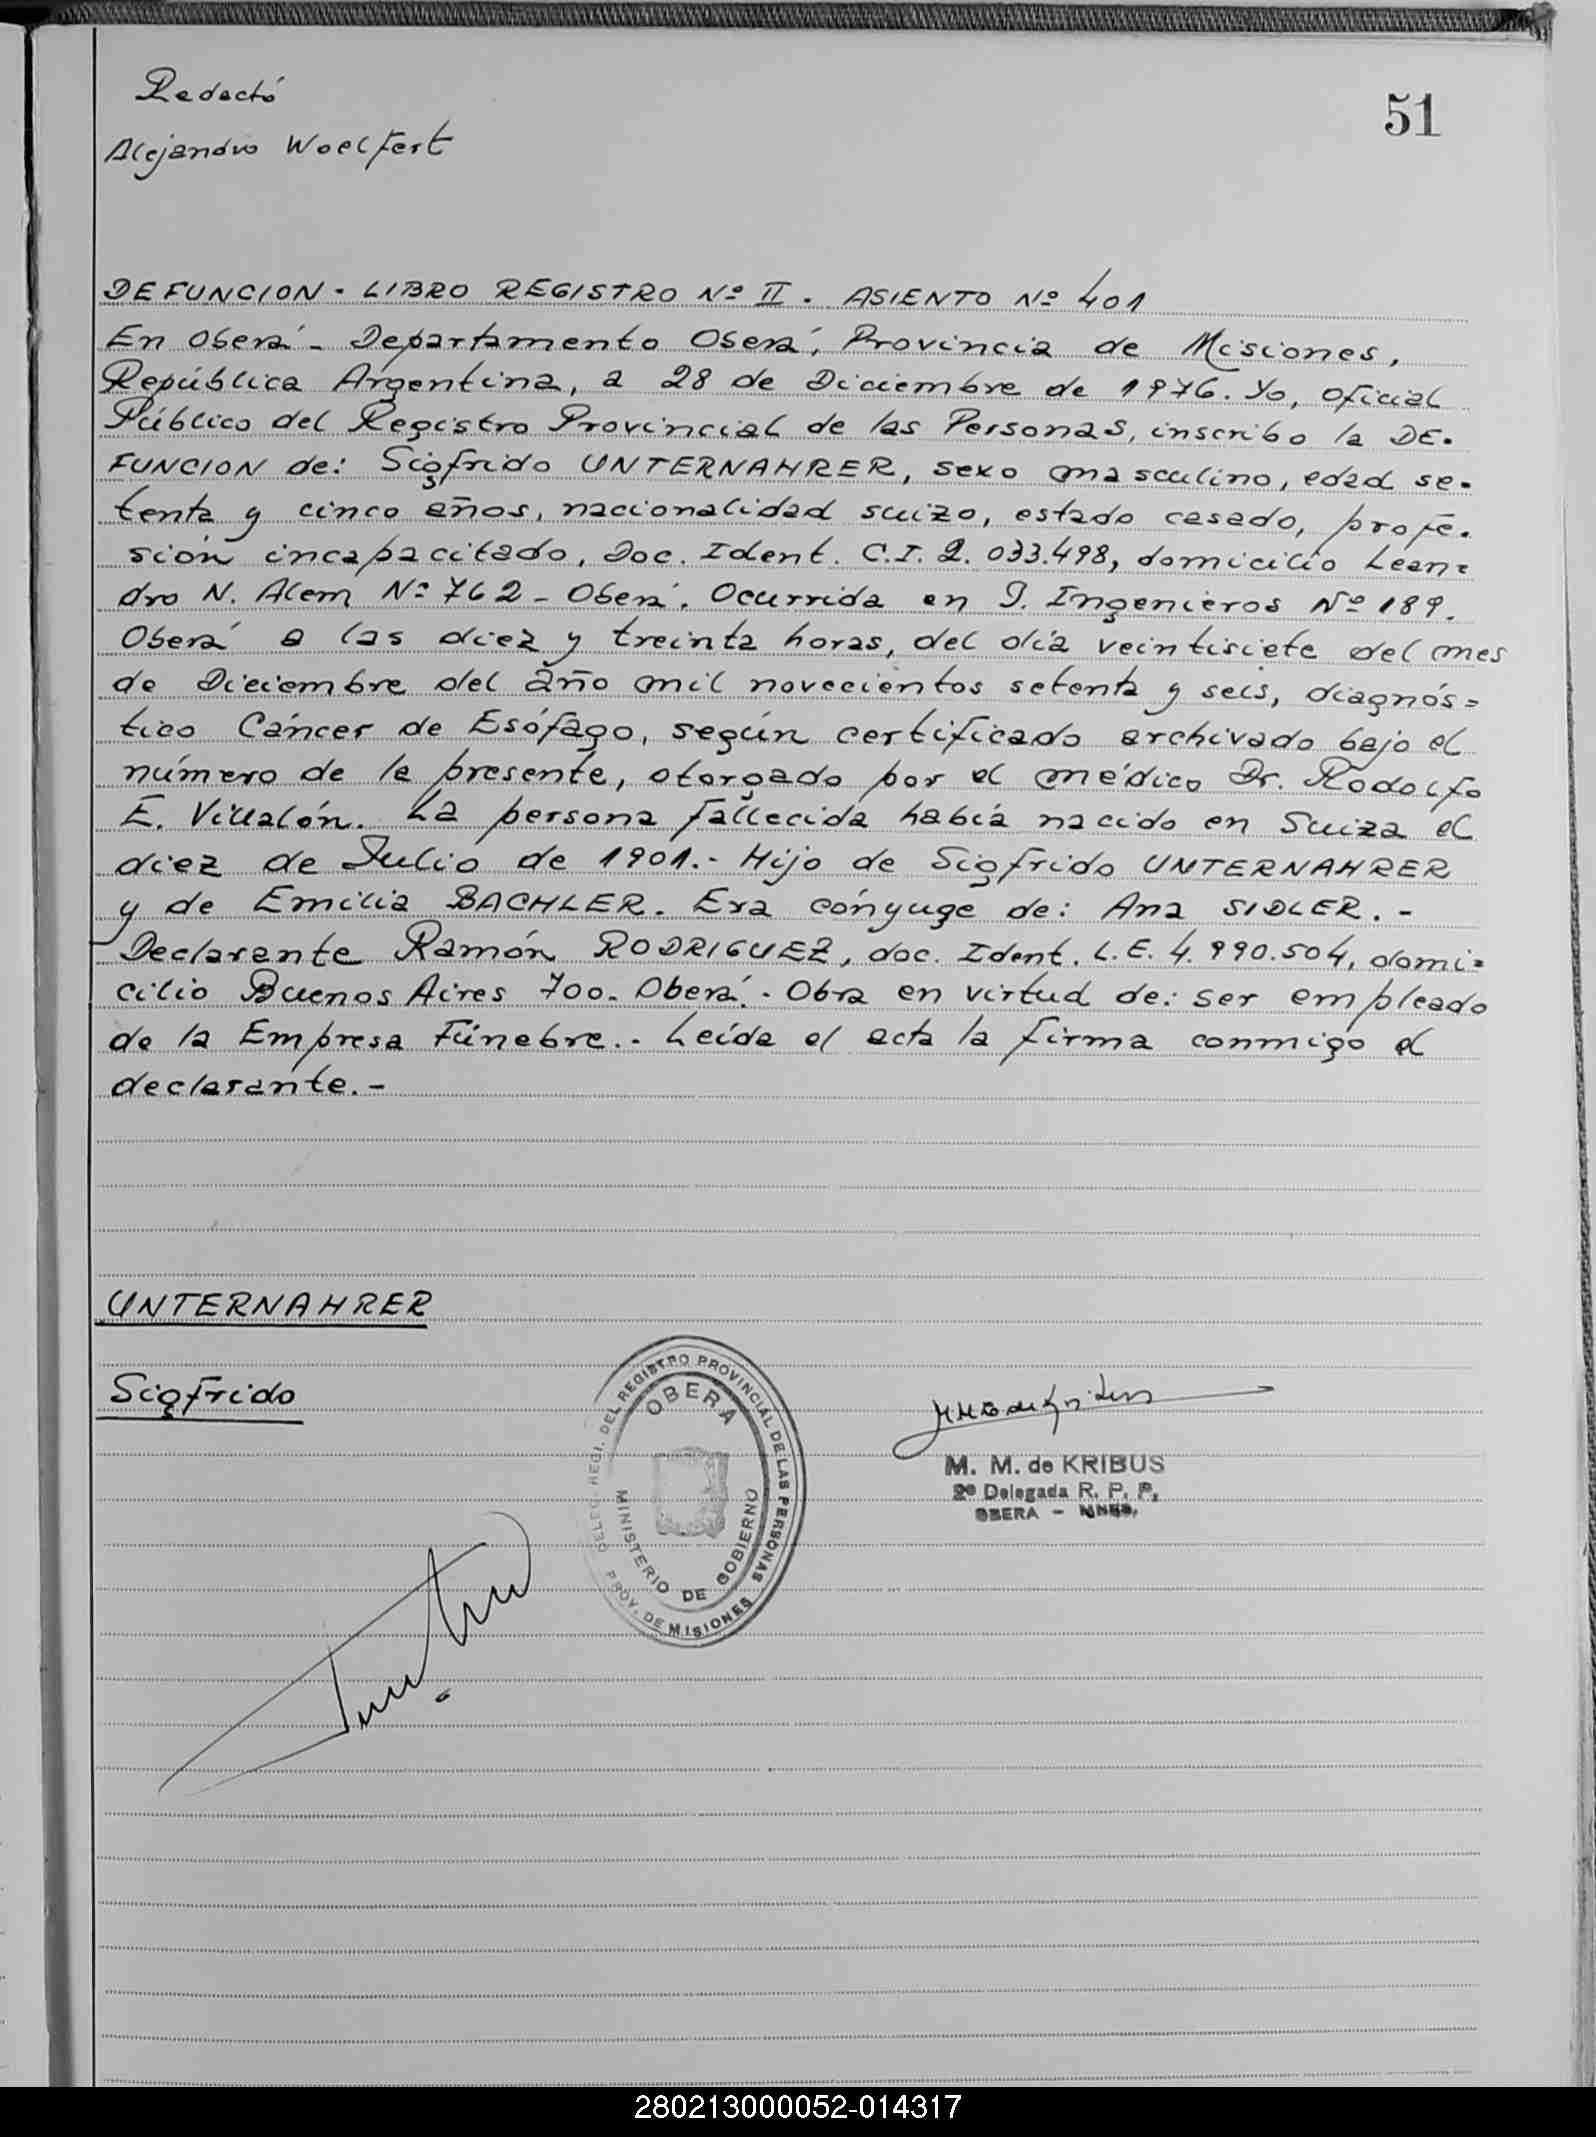 Redactó
51
Alejandro Woelfert
DEFUNCION - LIBRO REGISTRO Nº II. ASIENTO Nº 401
En Oberá - Departamento Oberá, Provincia de Misiones,
República Argentina, a 28 de Diciembre de 1976. Yo, Oficial
Público del Registro Provincial de las Personas, inscribo la DE-
FUNCION de: Sigfrido UNTERNAHRER, sexo masculino, edad se-
tenta y cinco años, nacionalidad suizo, estado casado, profe-
sión incapacitado, Doc. Ident. C.I. 2.033.498, domicilio Lean=
dro N. Alem Nº 762 - Oberá. Ocurrida en J. Ingenieros Nº 189.
Oberá a las diez y treinta horas, del día veintisiete del mes
de Diciembre del año mil novecientos setenta y seis, diagnós=
tico Cáncer de Esófago, según certificado archivado bajo el
número de la presente, otorgado por el médico Dr. Rodolfo
E. Villalón. La persona fallecida había nacido en Suiza el
diez de Julio de 1901.- Hijo de Sigfrido UNTERNAHRER
y de Emilia BACHLER. Era cónyuge de: Ana SIDLER. -
Declarante Ramón RODRIGUEZ, doc. Ident. L.E. 4.990.504, domi=
cilio Buenos Aires 700. Oberá. - Obra en virtud de: ser empleado
de la Empresa Fúnebre. - Leída el acta la firma conmigo el
declarante.-
UNTERNAHRER
Sigfrido
DELEG. REGI. DEL REGISTRO PROVINCIAL DE LAS PERSONAS
OBERA
MINISTERIO DE GOBIERNO
PROV. DE MISIONES
M. M. de KRIBUS
2º Delegada R. P. P.
OBERA - MNES.
280213000052-014317